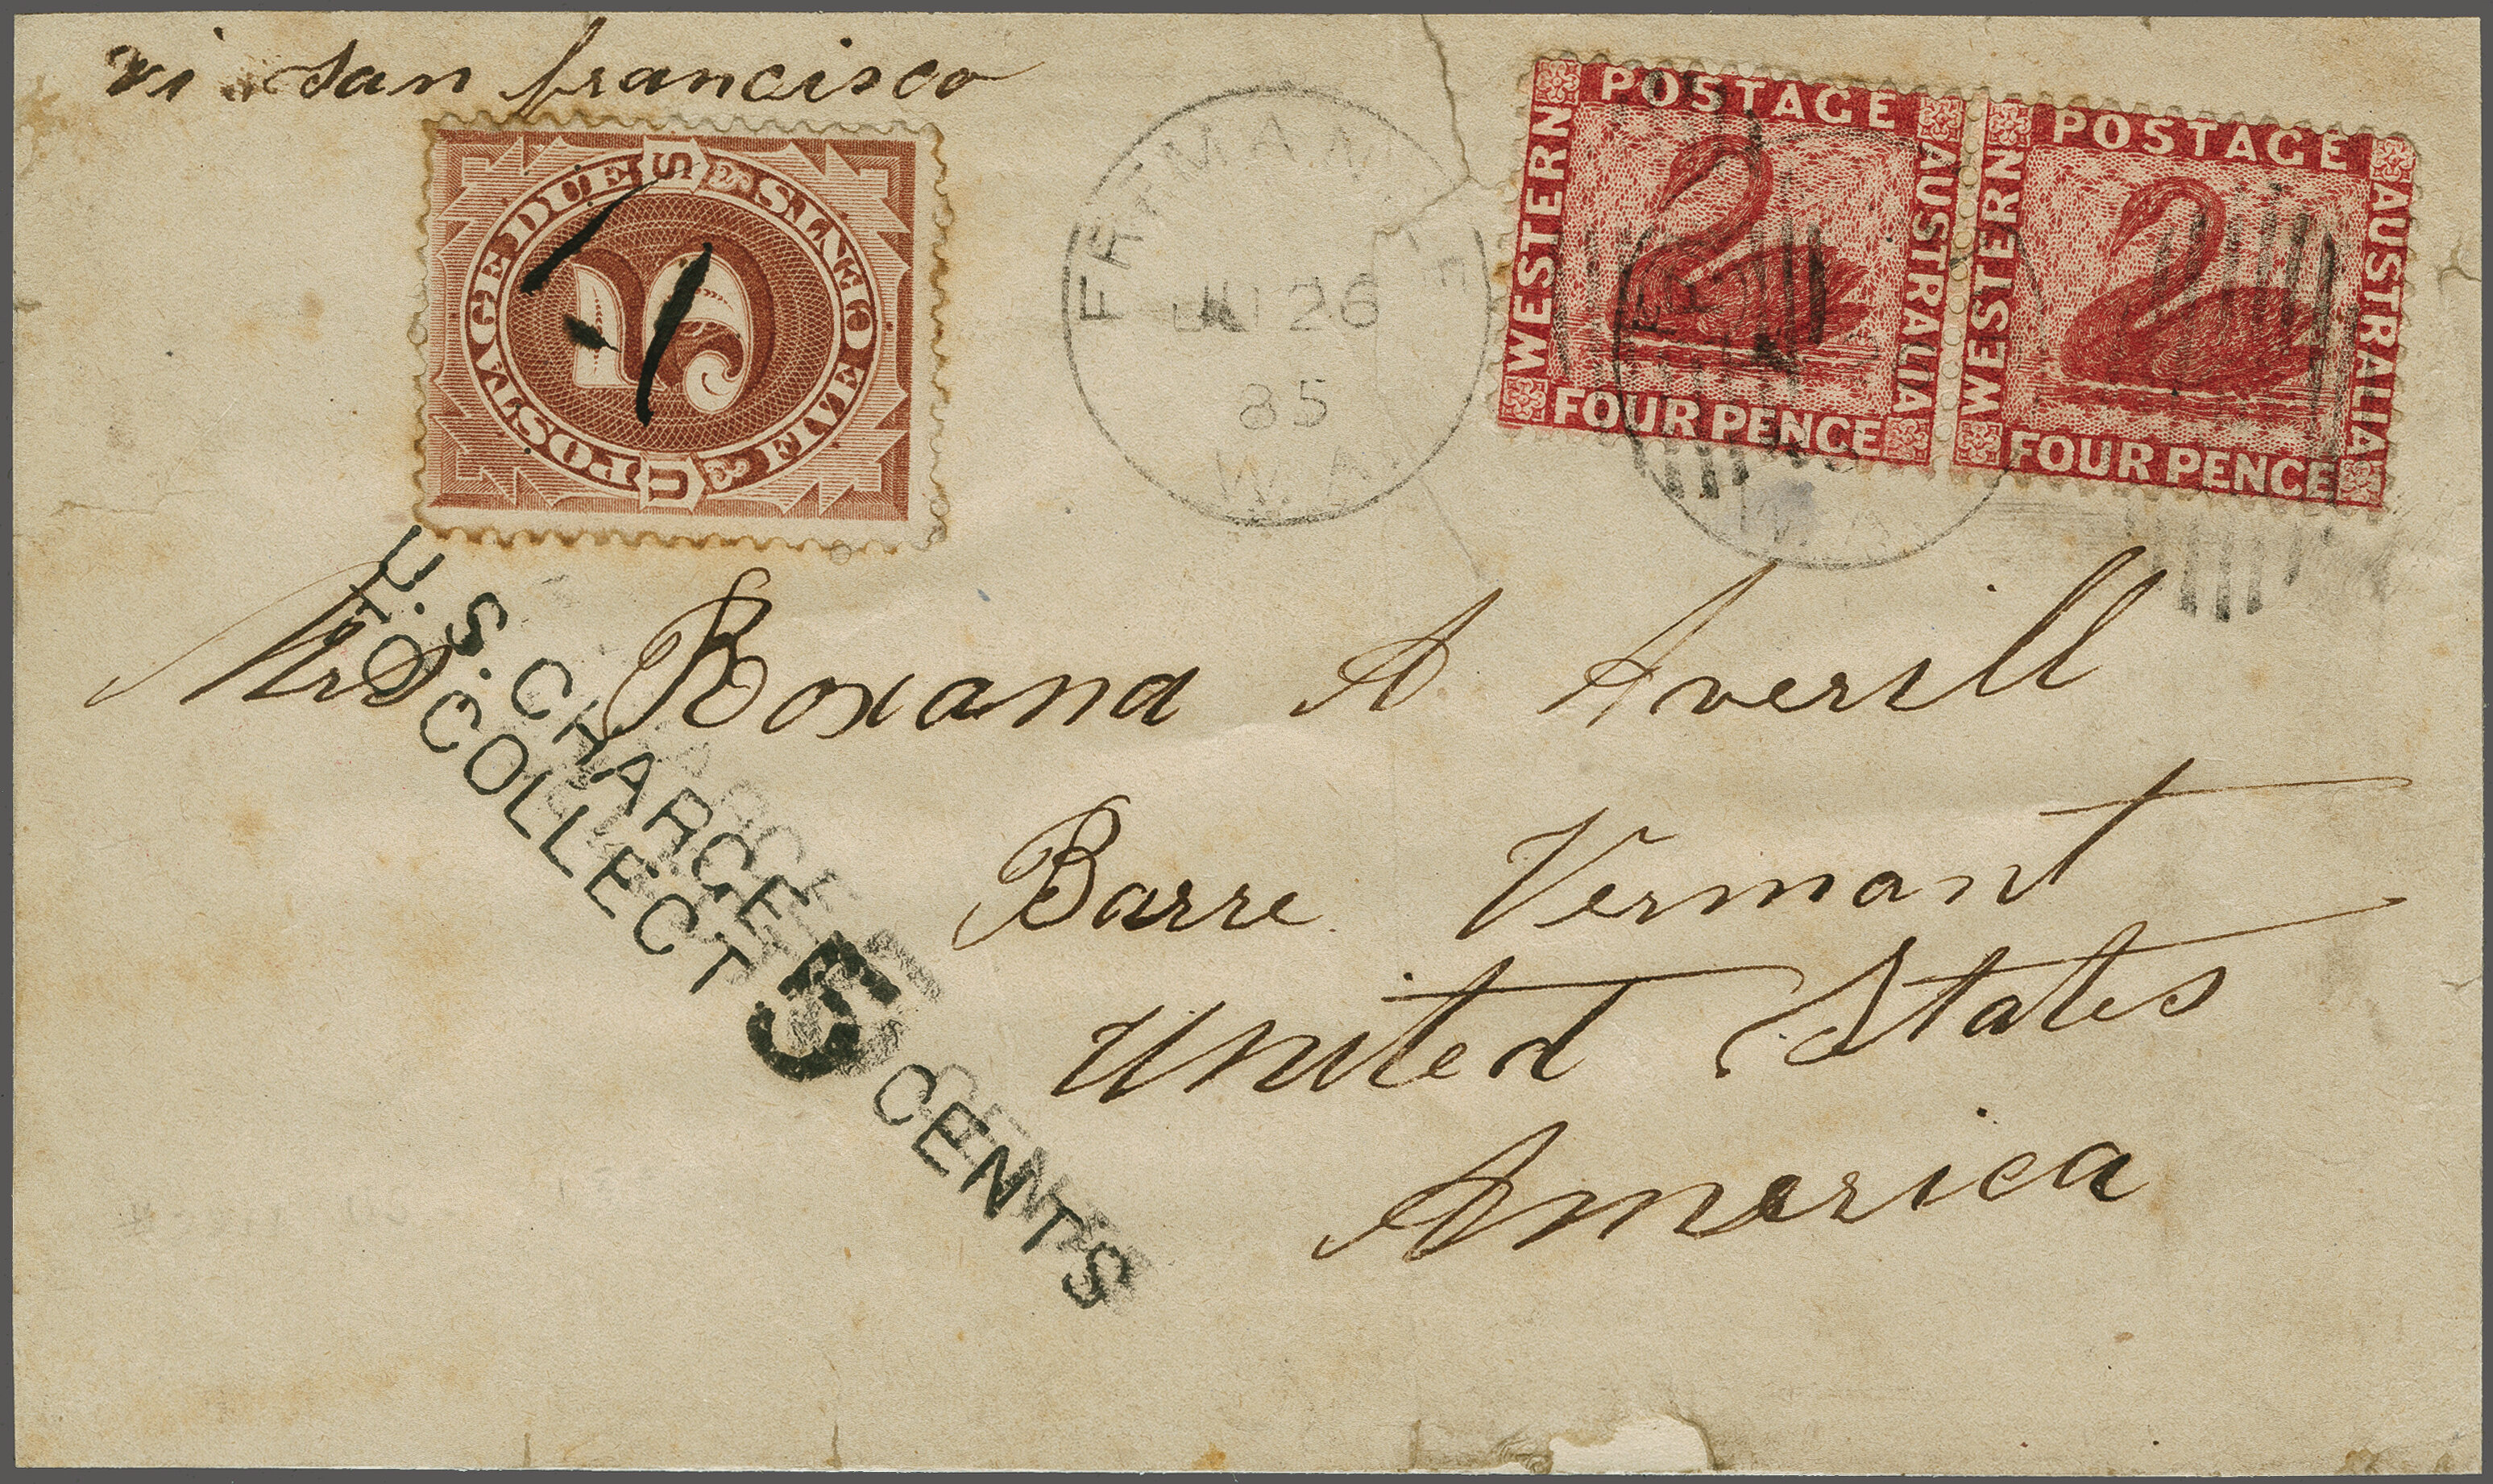 vi san francisco
POSTAGE DUE
U S
FIVE CENTS
5
JU 26
85
W.A.
POSTAGE
WESTERN
AUSTRALIA
FOUR PENCE
POSTAGE
WESTERN
AUSTRALIA
FOUR PENCE
W.A.
U.S. CHARGE
TO COLLECT
5 CENTS
Mrs Roxana A Averill
Barre Vermont
United States
America